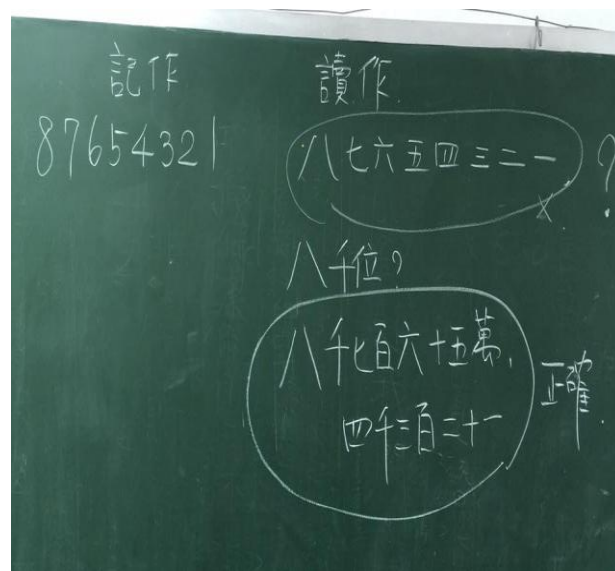 記作 讀作
87654321 八七六五四三二一 ?
×
八千位?
八千七百六十五萬,
四千三百二十一 正確.